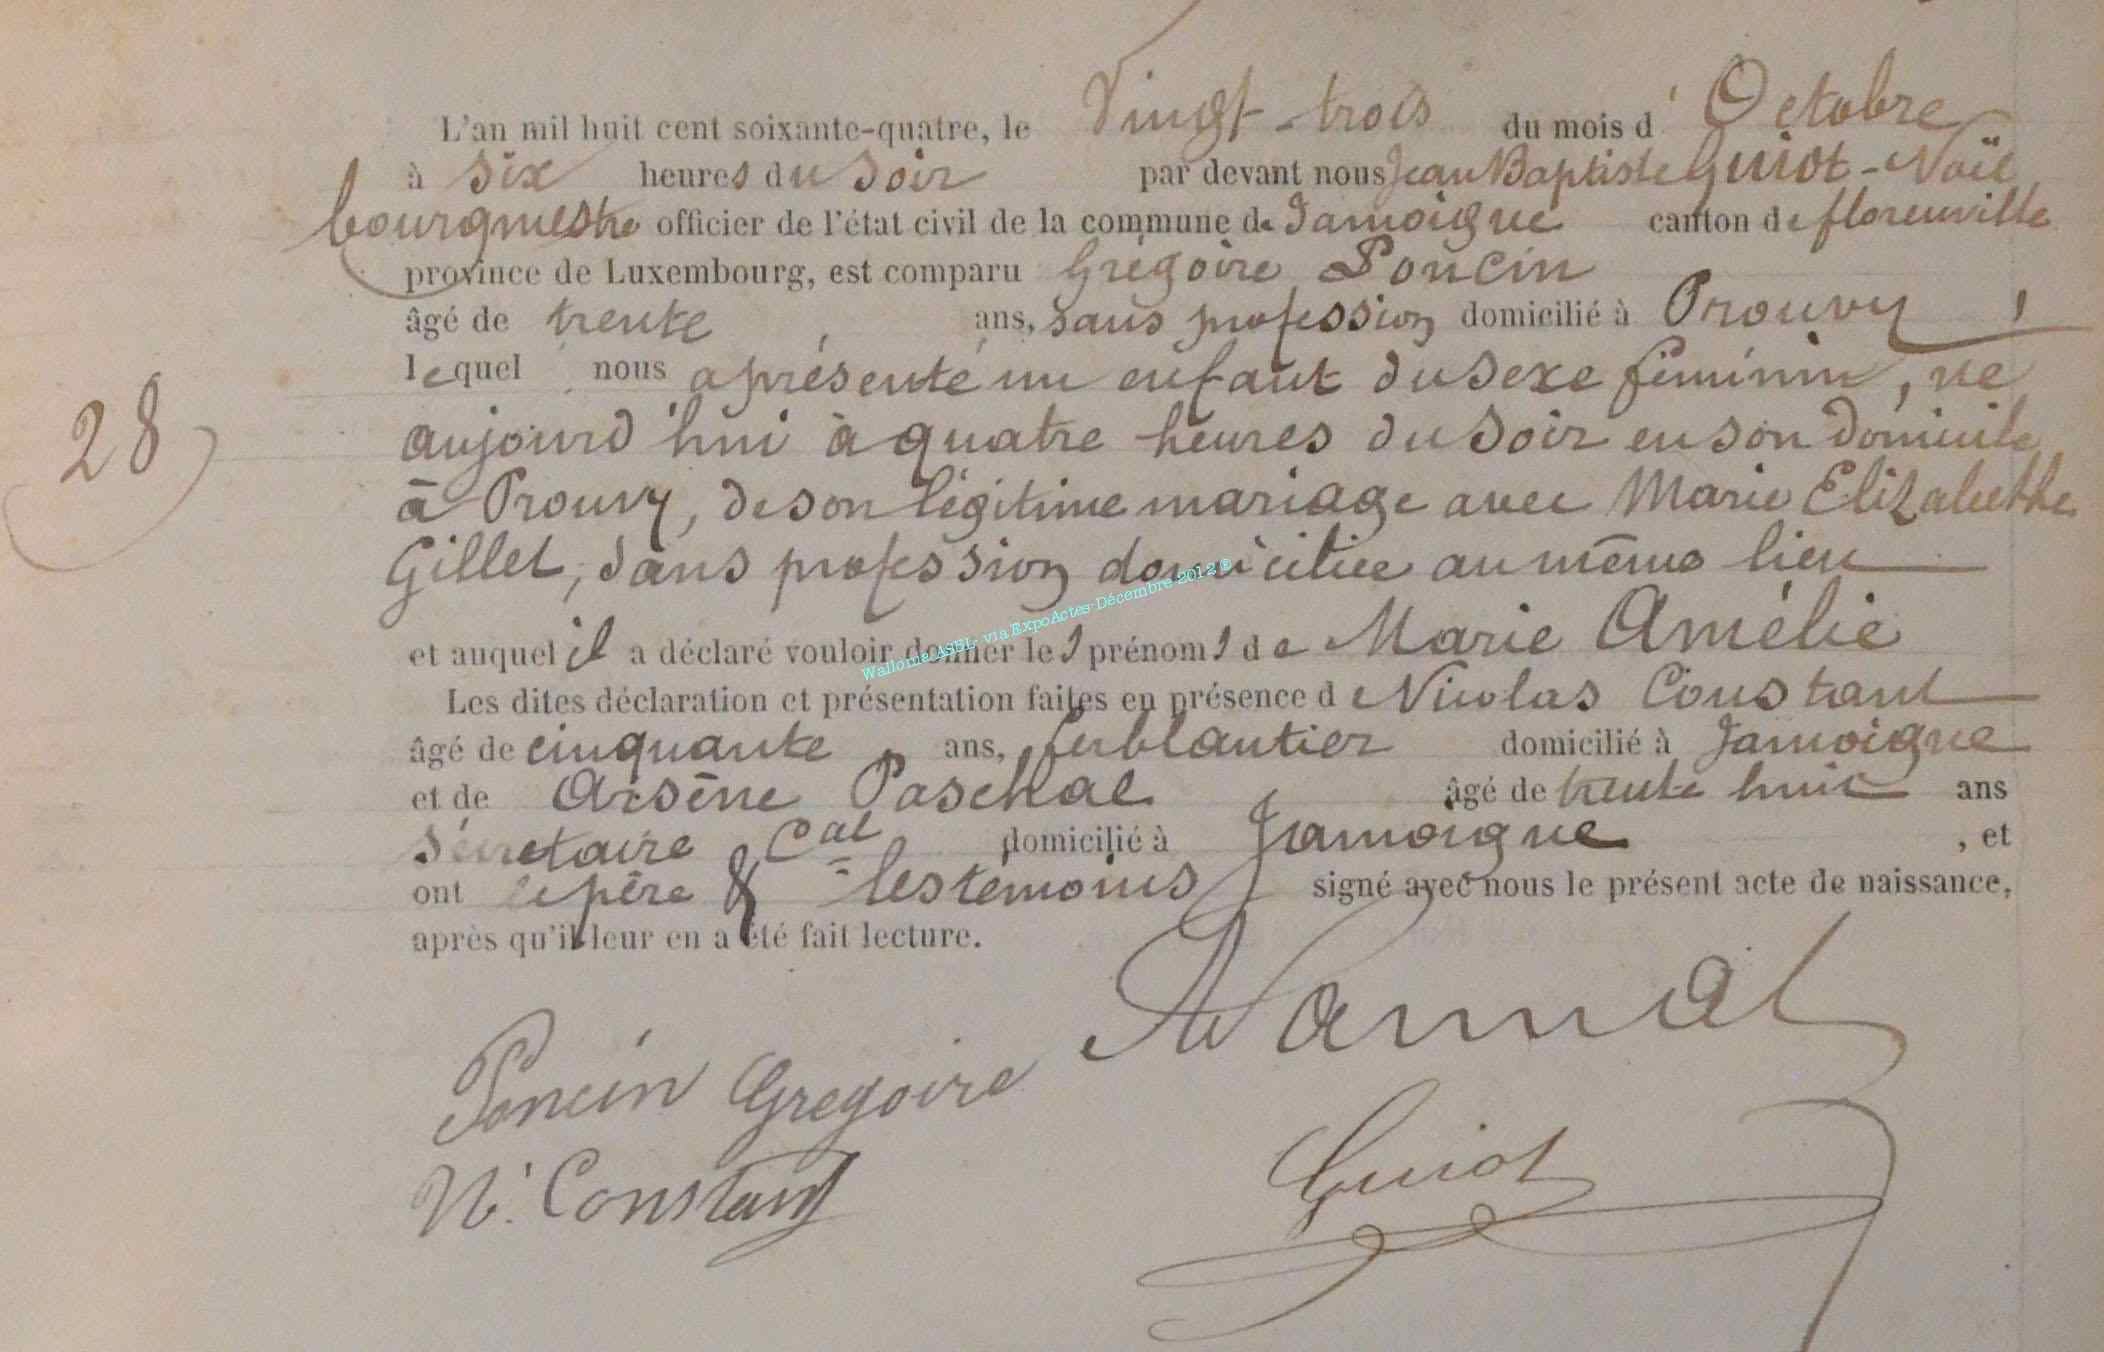 L'an mil huit cent soixante-quatre, le Vingt-trois du mois d'Octobre
à six heures du soir par devant nous Jean Baptiste Guiot-Noël
bourgmestre officier de l'état civil de la commune de Jamoigne canton de florenville
province de Luxembourg, est comparu Grégoire Poncin
âgé de trente ans, sans profession domicilié à Prouvy,
lequel nous a présenté un enfant du sexe féminin, né
28
aujourd'hui à quatre heures du soir en son domicile
à Prouvy, de son légitime mariage avec Marie Elizabethe
Gillet, sans profession domiciliée au même lieu
et auquel il a déclaré vouloir donner les prénoms de Marie Amélie
Wallonie ASBL via ExpoActes-Décembre 2012 ®
Les dites déclaration et présentation faites en présence de Nicolas Constant
âgé de cinquante ans, ferblantier domicilié à Jamoigne
et de Arsène Paschal âgé de trente huit ans
sécretaire Cal domicilié à Jamoigne, et
ont le père & les témoins signé avec nous le présent acte de naissance,
après qu'il leur en a été fait lecture.
Poncin Gregoire
N. Constant
Guiot